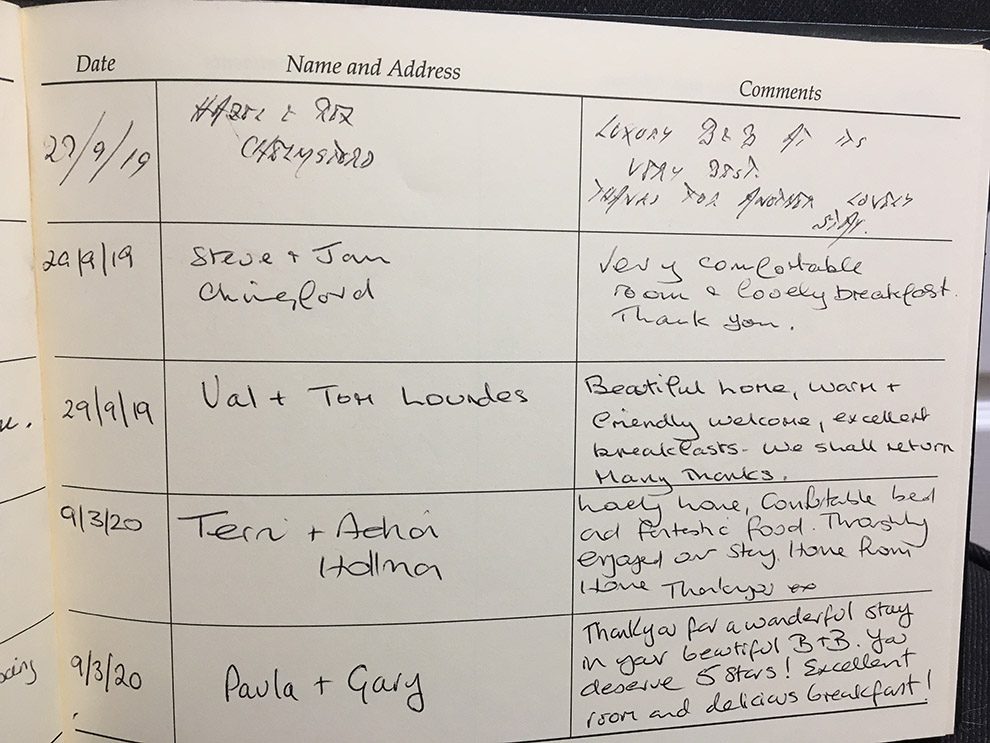 Date Name and Address Comments
27/9/19
HAZEL & REZ
CHELMSFORD
LUXURY B&B AT ITS
VERY BEST.
THANKS FOR ANOTHER LOVELY
STAY.
29/9/19
Steve + Jan
Chingford
Very comfortable
room & lovely breakfast.
Thank you.
29/9/19
Val + Tom Lowndes
Beautiful home, warm +
friendly welcome, excellent
breakfasts - we shall return
Many Thanks.
9/3/20
Terri +
Lovely home, Comfortable bed
and fantastic food. Throughly
enjoyed our stay. Home from
Home Thankyou xx
9/3/20
Paula + Gary
Thankyou for a wonderful stay
in your beautiful B+B. You
deserve 5 stars! Excellent
room and delicious breakfast!